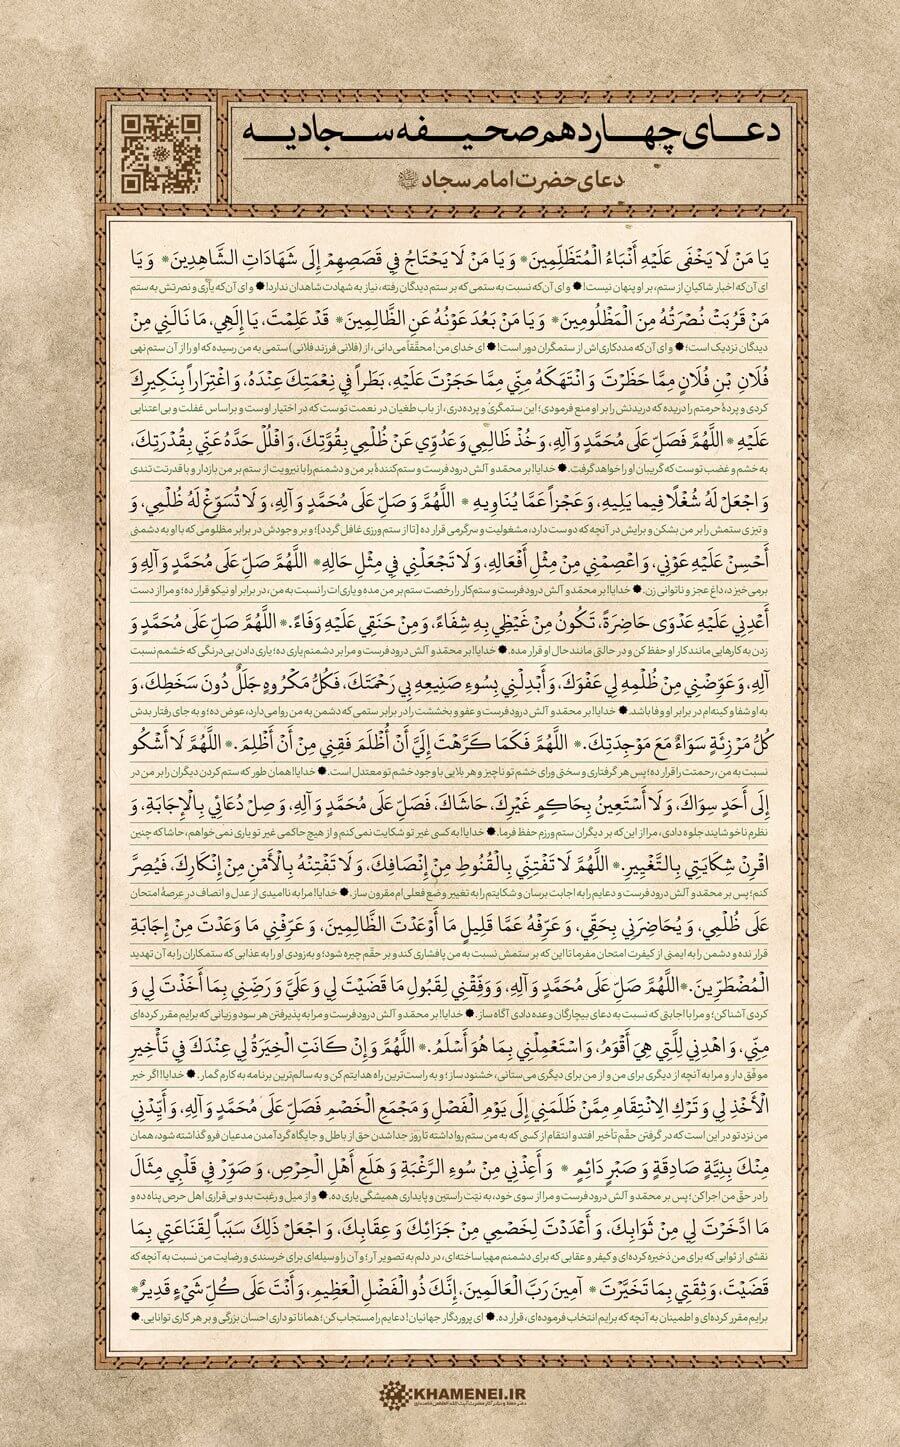 دعای چهاردهم صحیفه سجادیه
دعای حضرت امام سجاد
يَا مَنْ لَا يَخْفَى عَلَيْهِ أَنْبَاءُ الْمُتَظَلِّمِينَ* وَ يَا مَنْ لَا يَحْتَاجُ فِي قَصَصِهِمْ إِلَى شَهَادَاتِ الشَّاهِدِينَ* وَ يَا
ای آن‌که اخبار شاکیانِ از ستم، بر او پنهان نیست! ✹ و ای آن‌که نسبت به ستمی که بر ستم دیدگان رفته، نیاز به شهادت شاهدان ندارد! ✹ و ای آن‌که یاری و نصرتش به ستم
مَنْ قَرُبَتْ نُصْرَتُهُ مِنَ الْمَظْلُومِينَ* وَ يَا مَنْ بَعُدَ عَوْنُهُ عَنِ الظَّالِمِينَ* قَدْ عَلِمْتَ، يَا إِلَهِي، مَا نَالَنِي مِنْ
دیدگان نزدیک است؛ ✹ و ای آن‌که مددکاری‌اش از ستمگران دور است! ✹ ای خدای من! محقّقاً می‌دانی، از (فلانی فرزند فلانی) ستمی به من رسیده که او را از آن ستم نهی
فُلَانِ بْنِ فُلَانٍ مِمَّا حَظَرْتَ وَ انْتَهَكَهُ مِنِّي مِمَّا حَجَزْتَ عَلَيْهِ، بَطَراً فِي نِعْمَتِكَ عِنْدَهُ، وَ اغْتِرَاراً بِنَكِيرِكَ
کردی و پردهٔ حرمتم را دریده که دریدنش را بر او منع فرمودی؛ این ستمگری و پرده‌دری، از باب طغیان در نعمت توست که در اختیار اوست و بر اساس غفلت و بی‌اعتنایی
عَلَيْهِ* اللَّهُمَّ فَصَلِّ عَلَى مُحَمَّدٍ وَ آلِهِ، وَ خُذْ ظَالِمِي وَ عَدُوِّي عَنْ ظُلْمِي بِقُوَّتِكَ، وَ افْلُلْ حَدَّهُ عَنِّي بِقُدْرَتِكَ،
به خشم و غضب توست که گریبان او را خواهد گرفت. ✹ خدایا! بر محمّد و آلش درود فرست و ستم‌کنندهٔ بر من و دشمنم را با نیرویت از ستم بر من بازدار و با قدرتت تندی
وَ اجْعَلْ لَهُ شُغْلًا فِيمَا يَلِيهِ، وَ عَجْزاً عَمَّا يُنَاوِيهِ* اللَّهُمَّ وَ صَلِّ عَلَى مُحَمَّدٍ وَ آلِهِ، وَ لَا تُسَوِّغْ لَهُ ظُلْمِي، وَ
و تیزی ستمش را بر من بشکن و برایش در آنچه که دوست دارد، مشغولیت و سرگرمی قرار ده [تا از ستم‌ورزی غافل گردد]؛ و بر وجودش در برابر مظلومی که با او به دشمنی
أَحْسِنْ عَلَيْهِ عَوْنِي، وَ اعْصِمْنِي مِنْ مِثْلِ أَفْعَالِهِ، وَ لَا تَجْعَلْنِي فِي مِثْلِ حَالِهِ* اللَّهُمَّ صَلِّ عَلَى مُحَمَّدٍ وَ آلِهِ وَ
برمی‌خیزد، داغ عجز و ناتوانی زن. ✹ خدایا! بر محمّد و آلش درود فرست و ستم‌کار را رخصت ستم بر من مده و یاری‌ات را نسبت به من، در برابر او نیکو قرار ده؛ و مرا از دست
أَعْدِنِي عَلَيْهِ عَدْوَى حَاضِرَةً، تَكُونُ مِنْ غَيْظِي بِهِ شِفَاءً، وَ مِنْ حَنَقِي عَلَيْهِ وَفَاءً.* اللَّهُمَّ صَلِّ عَلَى مُحَمَّدٍ وَ
زدن به کارهایی مانند کار او حفظ کن و در حالتی مانند حال او قرار مده. ✹ خدایا! بر محمّد و آلش درود فرست و مرا بر دشمنم یاری ده؛ یاری دادن بی‌درنگی که خشمم نسبت
آلِهِ، وَ عَوِّضْنِي مِنْ ظُلْمِهِ لِي عَفْوَكَ، وَ أَبْدِلْنِي بِسُوءِ صَنِيعِهِ بِي رَحْمَتَكَ، فَكُلُّ مَكْرُوهٍ جَلَلٌ دُونَ سَخَطِكَ، وَ
به او شفا و کینه‌ام در برابر او وفا باشد. ✹ خدایا! بر محمّد و آلش درود فرست و عفو و بخششت را در برابر ستمی که دشمن به من روا می‌دارد، عوض ده؛ و به جای رفتار بدش
كُلُّ مَرْزِئَةٍ سَوَاءٌ مَعَ مَوْجِدَتِكَ.* اللَّهُمَّ فَكَمَا كَرَّهْتَ إِلَيَّ أَنْ أُظْلَمَ فَقِنِي مِنْ أَنْ أَظْلِمَ.* اللَّهُمَّ لَا أَشْكُو
نسبت به من، رحمتت را قرار ده؛ پس هر گرفتاری و سختی ورای خشم تو ناچیز و هر بلایی با وجود خشم تو معتدل است. ✹ خدایا! همان طور که ستم کردن دیگران را بر من در
إِلَى أَحَدٍ سِوَاكَ، وَ لَا أَسْتَعِينُ بِحَاكِمٍ غَيْرِكَ، حَاشَاكَ، فَصَلِّ عَلَى مُحَمَّدٍ وَ آلِهِ، وَ صِلْ دُعَائِي بِالْإِجَابَةِ، وَ
نظرم ناخوشایند جلوه دادی، مرا از این‌که بر دیگران ستم ورزم حفظ فرما. ✹ خدایا! به کسی غیر تو شکایت نمی‌کنم و از هیچ حاکمی غیر تو یاری نمی‌خواهم، حاشا که چنین
اقْرِنْ شِكَايَتِي بِالتَّغْيِيرِ.* اللَّهُمَّ لَا تَفْتِنِّي بِالْقُنُوطِ مِنْ إِنْصَافِكَ، وَ لَا تَفْتِنْهُ بِالْأَمْنِ مِنْ إِنْكَارِكَ، فَيُصِرَّ
کنم؛ پس بر محمّد و آلش درود فرست و دعایم را به اجابت برسان و شکایتم را به تغییر وضع فعلی‌ام مقرون ساز. ✹ خدایا! مرا به ناامیدی از عدل و انصاف در عرصهٔ امتحان
عَلَى ظُلْمِي، وَ يُحَاضِرَنِي بِحَقِّي، وَ عَرِّفْهُ عَمَّا قَلِيلٍ مَا أَوْعَدْتَ الظَّالِمِينَ، وَ عَرِّفْنِي مَا وَعَدْتَ مِنْ إِجَابَةِ
قرار نده و دشمن را به ایمنی از کیفرت امتحان مفرما تا این که بر ستمش نسبت به من پافشاری کند و بر حقّم چیره شود؛ و به‌زودی او را به عذابی که ستمکاران را به آن تهدید
الْمُضْطَرِّينَ.* اللَّهُمَّ صَلِّ عَلَى مُحَمَّدٍ وَ آلِهِ، وَ وَفِّقْنِي لِقَبُولِ مَا قَضَيْتَ لِي وَ عَلَيَّ وَ رَضِّنِي بِمَا أَخَذْتَ لِي وَ
کردی آشنا کن؛ و مرا با اجابتی که نسبت به دعای بیچارگان وعده دادی آگاه ساز. ✹ خدایا! بر محمّد و آلش درود فرست و مرا به پذیرفتن هر سود و زیانی که برایم مقرر کرده‌ای
مِنِّي، وَ اهْدِنِي لِلَّتِي هِيَ أَقْوَمُ، وَ اسْتَعْمِلْنِي بِمَا هُوَ أَسْلَمُ.* اللَّهُمَّ وَ إِنْ كَانَتِ الْخِيَرَةُ لِي عِنْدَكَ فِي تَأْخِيرِ
موفّق دار و مرا به آنچه از دیگری برای من و از من برای دیگری می‌ستانی، خشنود ساز؛ و به راست‌ترین راه هدایتم کن و به سالم‌ترین برنامه به کارم گمار. ✹ خدایا! اگر خیر
الْأَخْذِ لِي وَ تَرْكِ الِانْتِقَامِ مِمَّنْ ظَلَمَنِي إِلَى يَوْمِ الْفَصْلِ وَ مَجْمَعِ الْخَصْمِ فَصَلِّ عَلَى مُحَمَّدٍ وَ آلِهِ، وَ أَيِّدْنِي
من نزد تو در این است که در گرفتن حقّم تأخیر افتد و انتقام از کسی که به من ستم روا داشته تا روز جدا شدن حق از باطل و جایگاه گرد آمدن مدعیان فرو گذاشته شود، همان
مِنْكَ بِنِيَّةٍ صَادِقَةٍ وَ صَبْرٍ دَائِمٍ* وَ أَعِذْنِي مِنْ سُوءِ الرَّغْبَةِ وَ هَلَعِ أَهْلِ الْحِرْصِ، وَ صَوِّرْ فِي قَلْبِي مِثَالَ
را در حقّ من اجرا کن؛ پس بر محمّد و آلش درود فرست و مرا از سوی خود، به نیّت راستین و پایداری همیشگی یاری ده. ✹ و از میل و رغبت بد و بی‌قراری اهل حرص پناه ده و
مَا ادَّخَرْتَ لِي مِنْ ثَوَابِكَ، وَ أَعْدَدْتَ لِخَصْمِي مِنْ جَزَائِكَ وَ عِقَابِكَ، وَ اجْعَلْ ذَلِكَ سَبَباً لِقَنَاعَتِي بِمَا
نقشی از ثوابی که برای من ذخیره کرده‌ای و کیفر و عقابی که برای دشمنم مهیا ساخته‌ای، در دلم به تصویر آر؛ و آن را وسیله‌ای برای خرسندی و رضایت من نسبت به آنچه که
قَضَيْتَ، وَ ثِقَتِي بِمَا تَخَيَّرْتَ* آمِينَ رَبَّ الْعَالَمِينَ، إِنَّكَ ذُو الْفَضْلِ الْعَظِيمِ، وَ أَنْتَ عَلَى كُلِّ شَيْءٍ قَدِيرٌ*
برایم مقرر کرده‌ای و اطمینان به آنچه که برایم انتخاب فرموده‌ای، قرار ده. ✹ ای پروردگار جهانیان! دعایم را مستجاب کن؛ همانا تو داری احسان بزرگی و بر هر کاری توانایی. ✹
KHAMENEI.IR